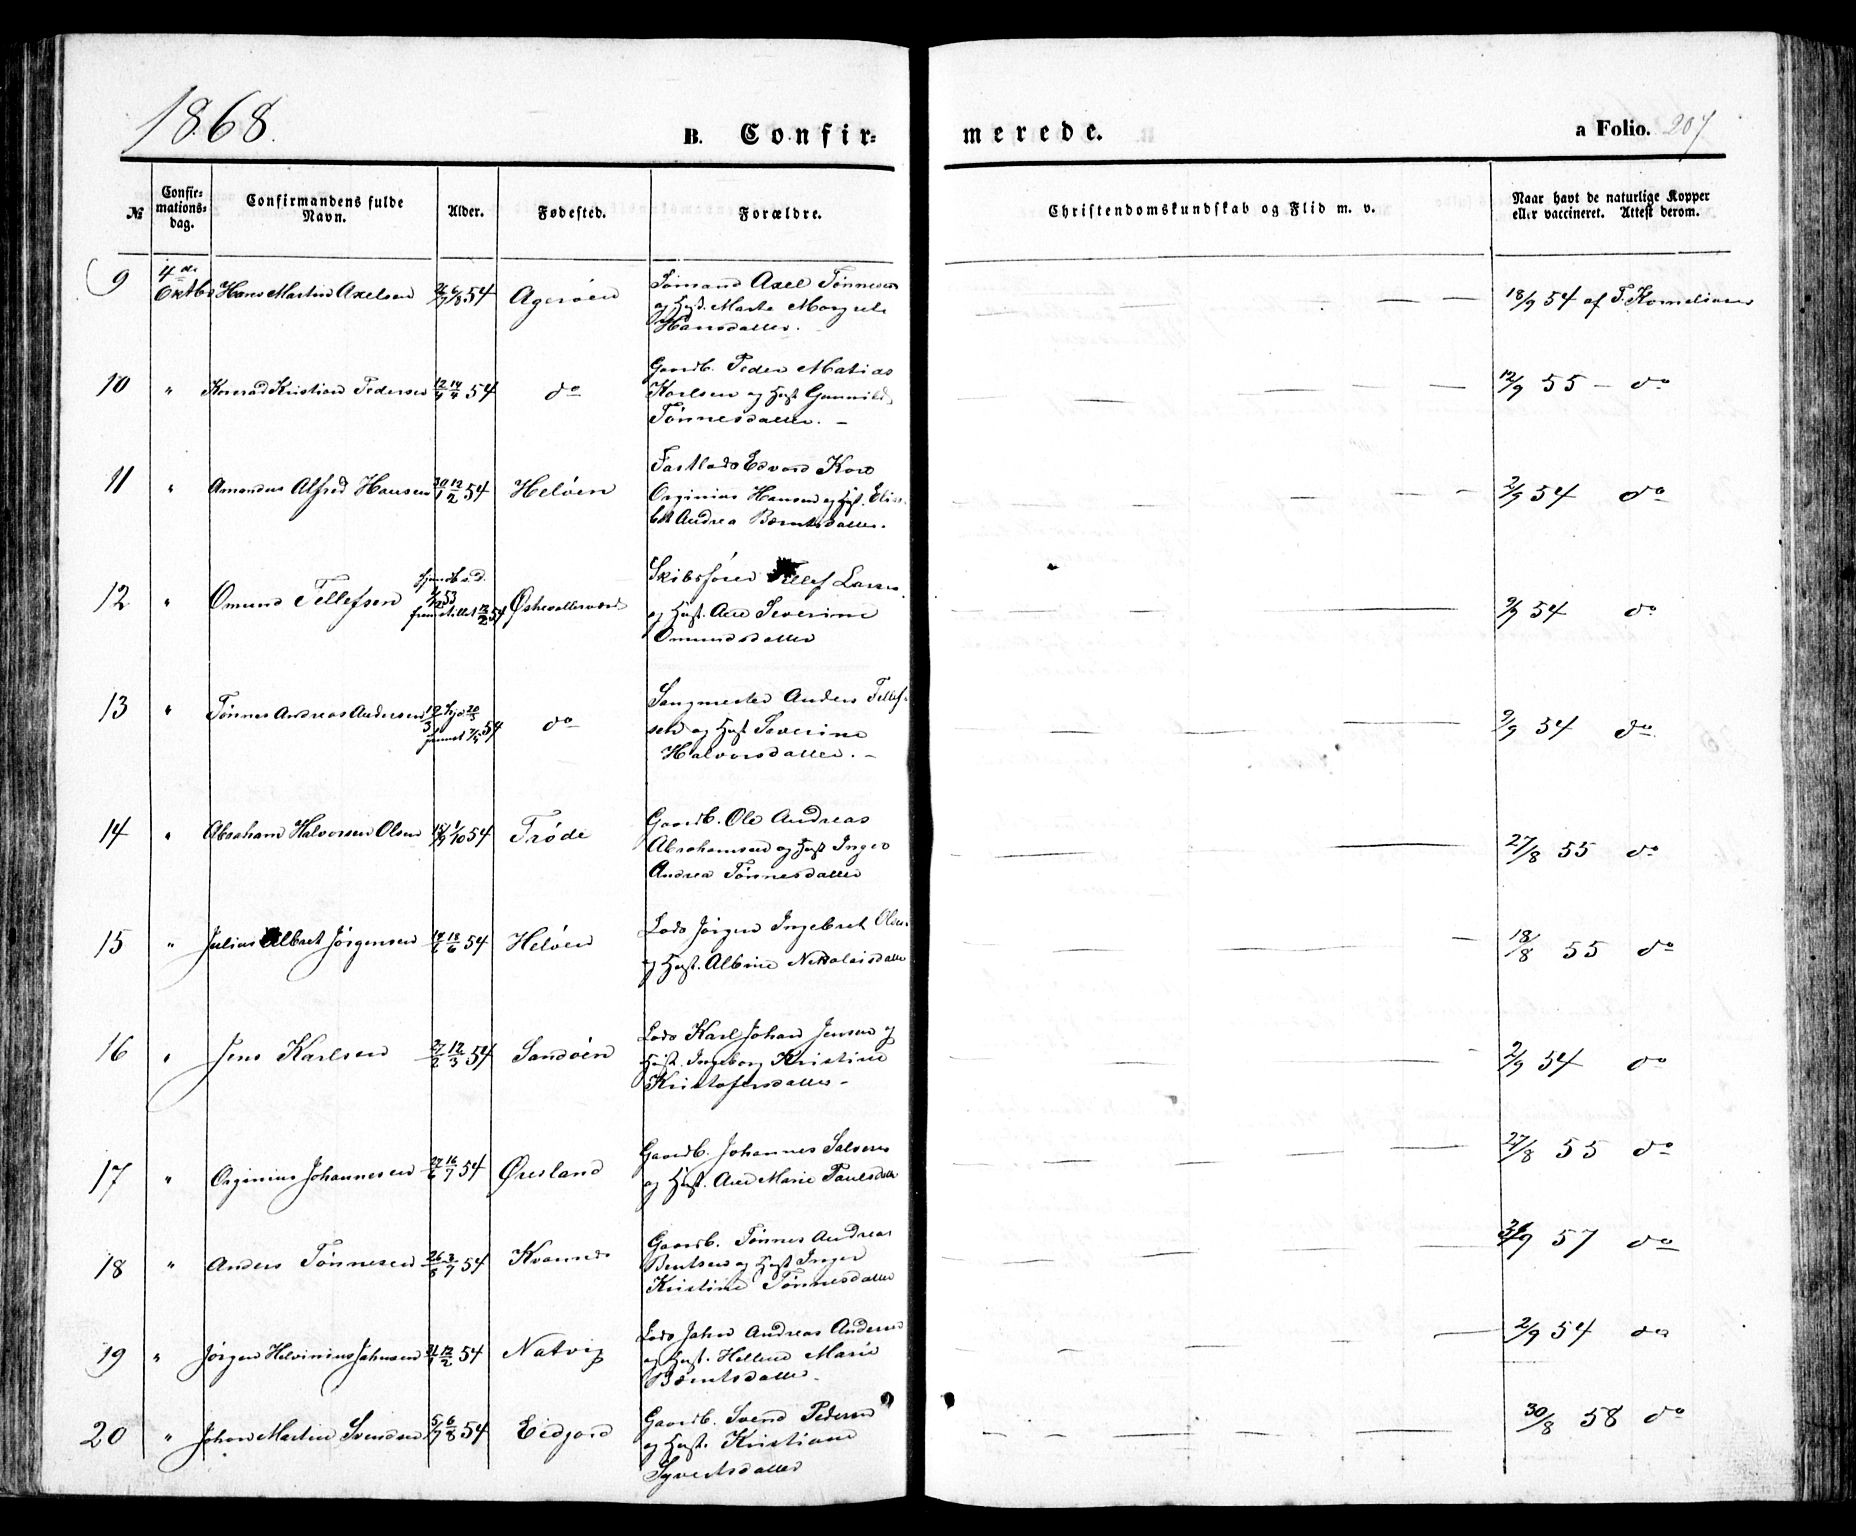 1868.
B. Confir-
merede.
a Folio. 207
№
Confirmations-dag.
Confirmandens fulde Navn.
Alder.
Fødested.
Forældre.
Christendomskundskab og Flid m. v.
Naar havt de naturlige Kopper
eller vaccineret. Attest derom.
9 4de Oktbr Hans Martin Axelsen 54 Agerøen
Sømand Axel Tønnesen
og Hust. Marte Margrete
Hansdatter.
18/9 54 af T. Korneliussen
10 " Konrad Kristian Pedersen 54 do
Gaardb. Peder Matias
Karlsen og Hust Gunnild
Tønnesdatter. –
12/9 55 – do
11 " Amandus Alfred Hansen 30/1 12/2 54 Heløen
Fastlods Edvard
Orginius Hansen og Hust.
Andrea Berntsdatter.
2/9 54 do
12 " Omund Tellefsen 12/2 54
Skibsfører Tellef Larsen
og Hust. Ane Severine
Omundsdatter
2/9 54 do
13 " Tønnes Andreas Andersen 12/3 54 do
Sangmester Anders Tellef-
sen og Hust Severine
Halvorsdatter. –
2/9 54 do
14 " Abraham Halvorsen Olsen 1/10 54 Trøde
Gaardb. Ole Andreas
Abrahamsen og Hust Inger
Andrea Tønnesdatter
27/8 55 do
15 " Julius Albret Jørgensen 18/6 54 Heløen
Lods Jørgen Ingebret Olsen
og Hust. Albine Nikolaisdatter
18/8 55 do
16 " Jens Karlsen 12/3 54 Sandøen
Lods Karl Johan Jensen og
Hust. Ingeborg Kristine
Kristofersdatter –
2/9 54 do
17 " Orginius Johannesen 27/6 16/7 54 Øresland
Gaardb. Johannes Salvesen
og Hust. Ane Marie Paulsdatter
27/8 55 do
18 " Anders Tønnesen 54
Gaardb. Tønnes Andreas
Bentsen og Hust Inger
Kristine Tønnesdatter
57 do
19 " Jørgen Helvinius Jahnsen 12/2 54 Natvig
Lods Jahn Andreas Andersen
og Hust. Hellene Marie
Berntsdatter.
2/9 54 do
20 " Johan Martin Svendsen 5/7 6/8 54 Eidjord
Gaardb. Svend Pedersen
og Hust. Kristiane
Syvertsdatter
30/8 58 do